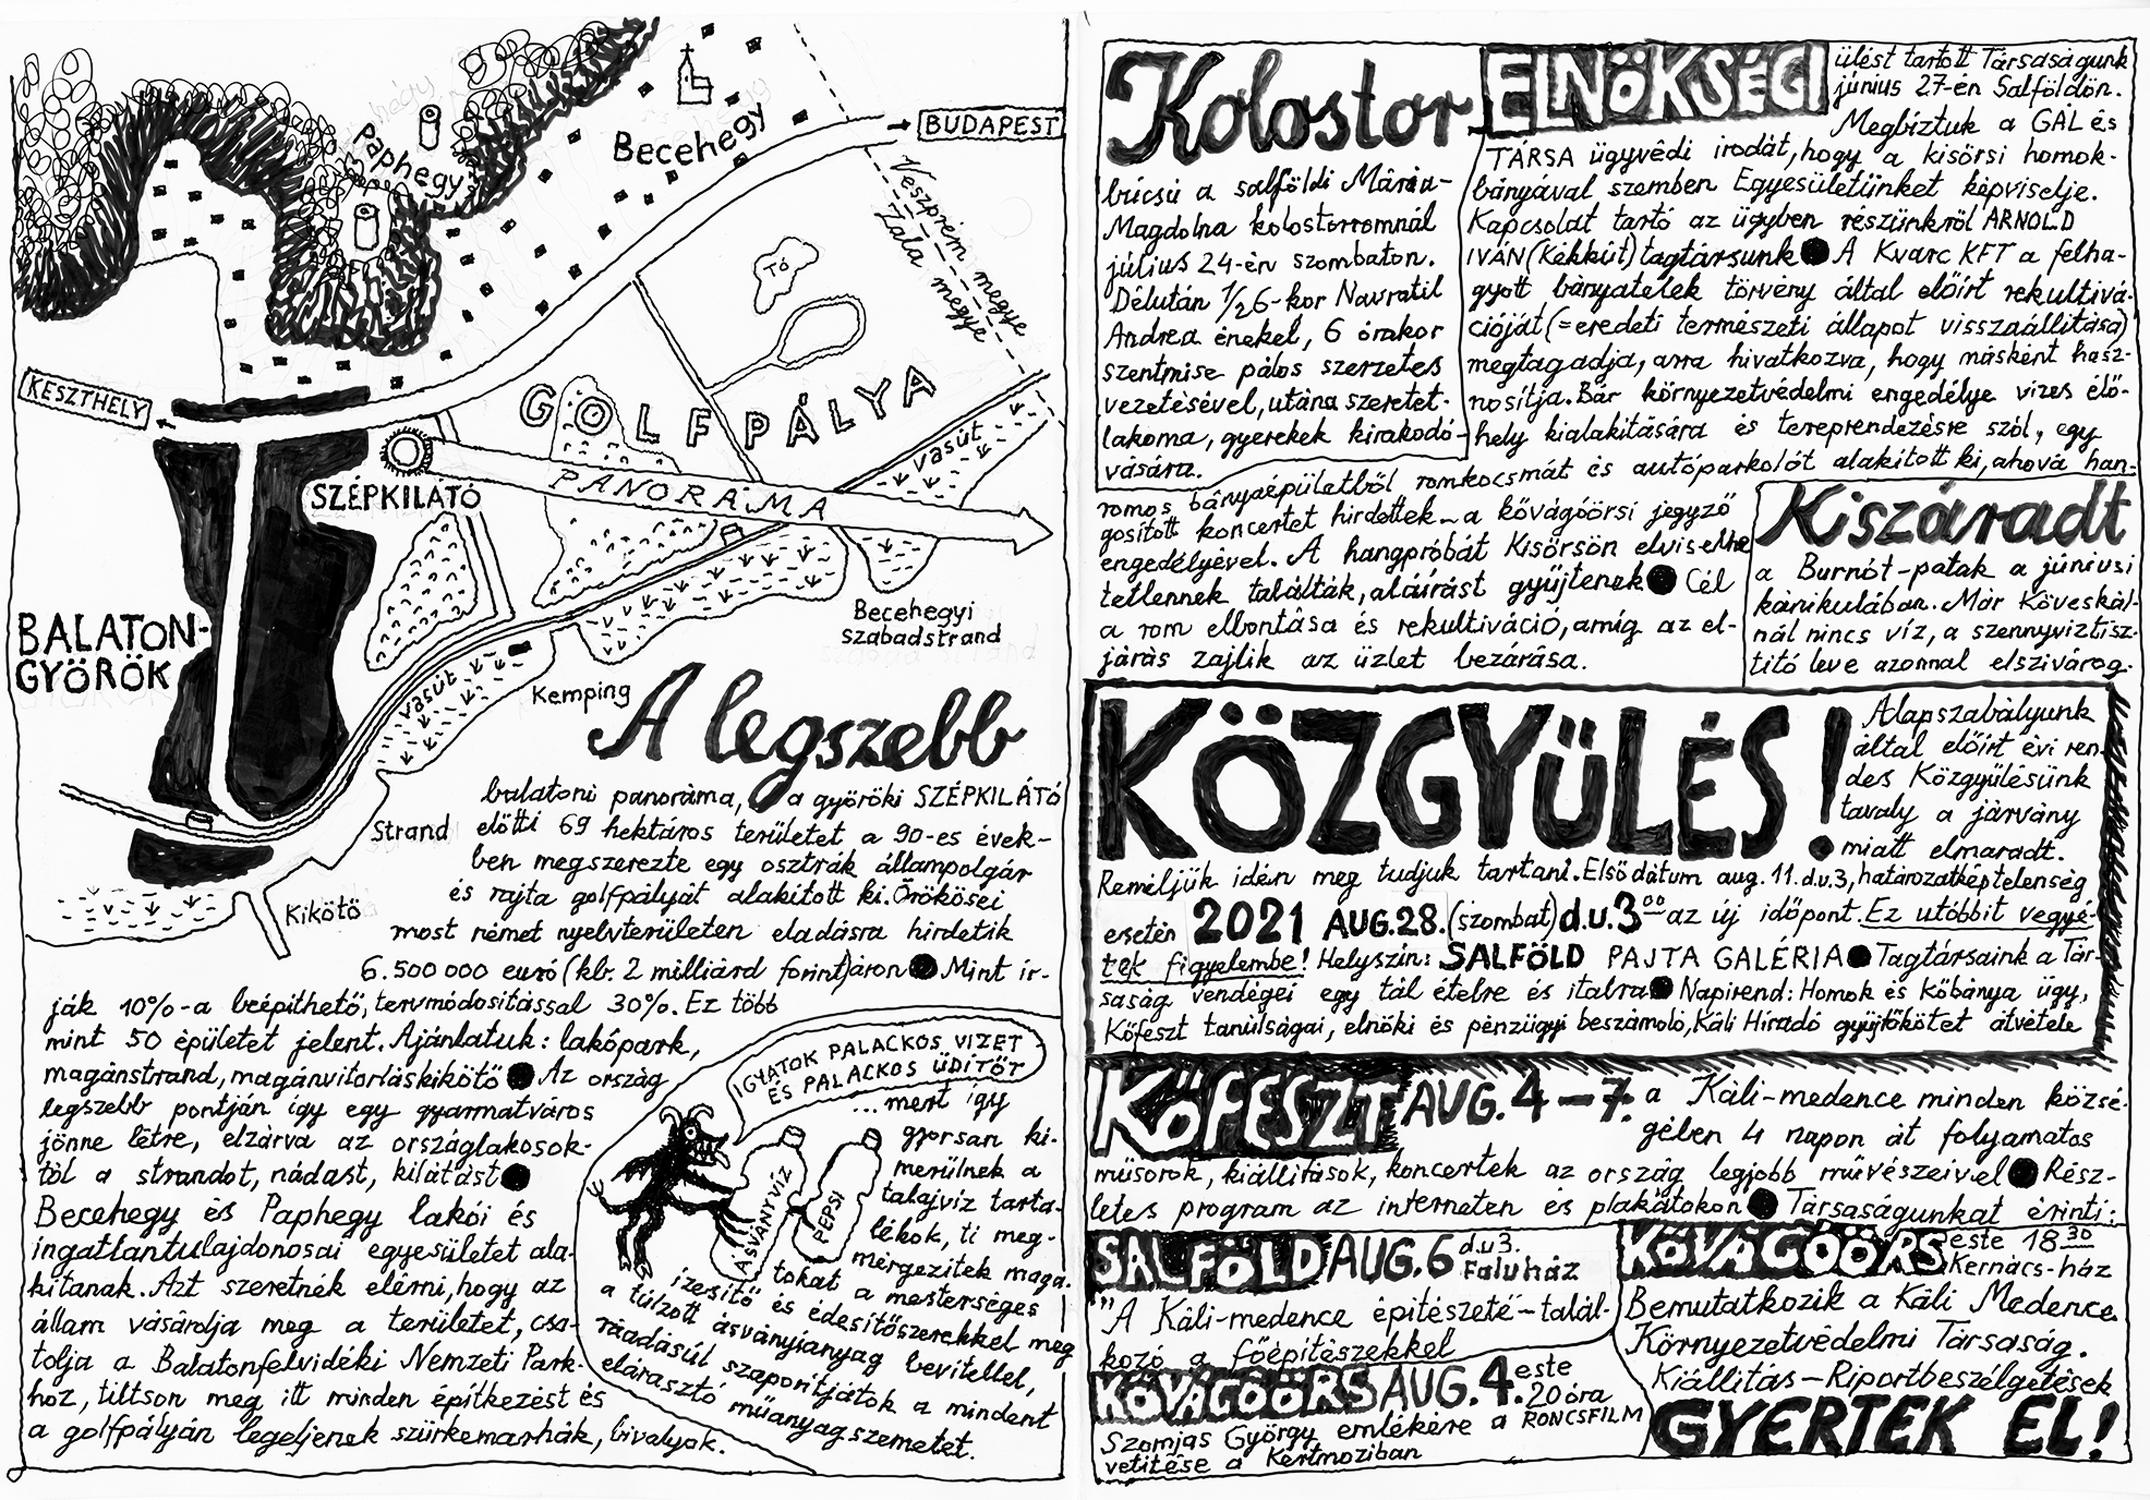 Paphegy
Becehegy
BUDAPEST
Veszprém megye
Zala megye
Tó
KESZTHELY
GOLFPÁLYA
vasút
PANORÁMA
SZÉPKILÁTÓ
BALATON-
GYÖRÖK
Becehegyi
szabadstrand
vasút
Kemping
Strand
Kikötő
A legszebb
balatoni panoráma, a györöki SZÉPKILÁTÓ
előtti 69 hektáros területet a 90-es évek-
ben megszerezte egy osztrák állampolgár
és rajta golfpályát alakított ki. Örökösei
most német nyelvterületen eladásra hirdetik
6.500 000 euró (kb. 2 milliárd forint) áron ● Mint ír-
ják 10%-a beépíthető, tervmódosítással 30%. Ez több
mint 50 épületet jelent. Ajánlatuk: lakópark,
magánstrand, magánvitorláskikötő ● Az ország
legszebb pontján így egy gyarmatváros
jönne létre, elzárva az országlakosok-
tól a strandot, nádast, kilátást ●
Becehegy és Paphegy lakói és
ingatlantulajdonosai egyesületet ala-
kítanak. Azt szeretnék elérni, hogy az
állam vásárolja meg a területet, csa-
tolja a Balatonfelvidéki Nemzeti Park-
hoz, tiltson meg itt minden építkezést és
a golfpályán legeljenek szürkemarhák, bivalyok.
IGYATOK PALACKOS VIZET
ÉS PALACKOS ÜDÍTŐT
...mert így
gyorsan ki-
merülnek a
talajvíz tarta-
lékok, ti meg-
mérgezitek maga-
tokat a mesterséges
ízesítő és édesítőszerekkel meg
a túlzott ásványianyag bevitellel,
ráadásúl szaporítjátok a mindent
elárasztó műanyagszemetet.
ÁSVÁNYVÍZ
PEPSI
Kolostor
búcsú a salföldi Mária-
Magdolna kolostorromnál
július 24-én szombaton.
Délután 1/2 6-kor Navratil
Andrea énekel, 6 órakor
szentmise pálos szerzetes
vezetésével, utána szeretet-
lakoma, gyerekek kirakodó-
vására.
ELNÖKSÉGI ülést tartott Társaságunk
június 27-én Salföldön.
Megbíztuk a GÁL és
TÁRSA ügyvédi irodát, hogy a kisörsi homok-
bányával szemben Egyesületünket képviselje.
Kapcsolat tartó az ügyben részünkről ARNOLD
IVÁN (Kékkút) tagtársunk ● A Kvarc KFT a felha-
gyott bányatelek törvény által előírt rekultivá-
cióját (=eredeti természeti állapot visszaállítása)
megtagadja, arra hivatkozva, hogy másként hasz-
nosítja. Bár környezetvédelmi engedélye vizes élő-
hely kialakítására és tereprendezésre szól, egy
romos bányaépületből romkocsmát és autóparkolót alakított ki, ahová han-
gosított koncertet hirdettek - a kővágóörsi jegyző
engedélyével. A hangpróbát Kisörsön elviselhe-
tetlennek találták, aláírást gyűjtenek ● Cél
a rom elbontása és rekultiváció, amíg az el-
járás zajlik az üzlet bezárása.
Kiszáradt
a Burnót-patak a júniusi
kánikulában. Már Köveskál-
nál nincs víz, a szennyvíztisz-
tító leve azonnal elszivárog.
KÖZGYÜLÉS!
Alapszabályunk
által előírt évi ren-
des Közgyülésünk
tavaly a járvány
miatt elmaradt.
Reméljük idén meg tudjuk tartani. Első dátum aug. 11. d.u.3, határozatképtelenség
esetén 2021 AUG.28. (szombat) d.u.3⁰⁰ az új időpont. Ez utóbbit vegyé-
tek figyelembe! Helyszín: SALFÖLD PAJTA GALÉRIA ● Tagtársaink a Tár-
saság vendégei egy tál ételre és italra ● Napirend: Homok és Kőbánya ügy,
Kőfeszt tanúlságai, elnöki és pénzügyi beszámoló, Káli Híradó gyűjtőkötet átvétele
KőFESZT AUG. 4-7. a Káli-medence minden közsé-
gében 4 napon át folyamatos
műsorok, kiállítások, koncertek az ország legjobb művészeivel ● Rész-
letes program az interneten és plakátokon ● Társaságunkat érinti:
SALFÖLD AUG.6 d.u3.
Faluház
"A Káli-medence építészete" - talál-
kozó a főépítészekkel
KŐVÁGÓÖRS AUG.4. este
20 óra
Szomjas György emlékére a RONCSFILM
vetítése a Kertmoziban
KŐVÁGÓÖRS este 18³⁰
Kernács-ház
Bemutatkozik a Káli Medence
Környezetvédelmi Társaság.
Kiállítás - Riportbeszélgetések
GYERTEK EL!